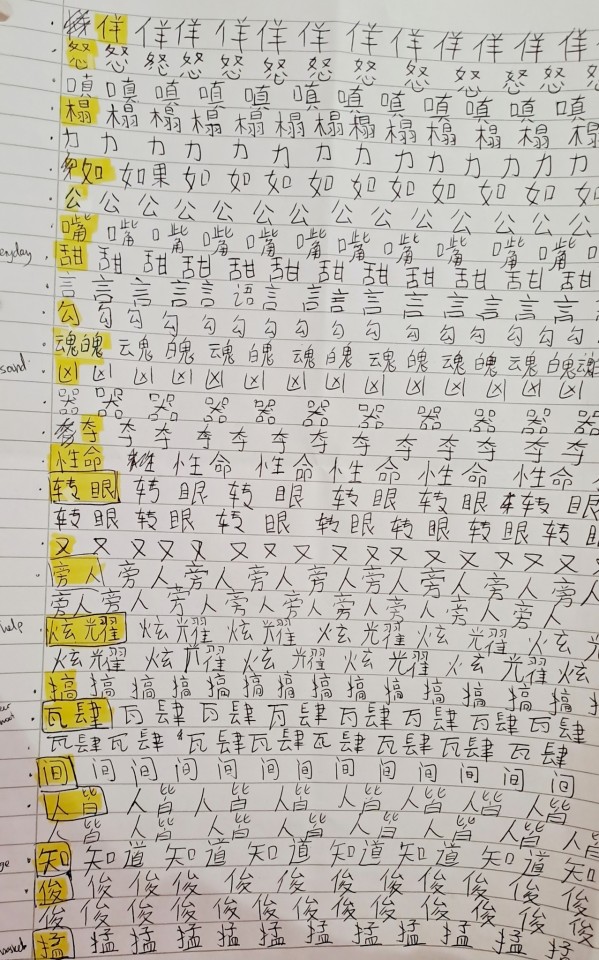 佯 佯 佯 佯 佯 佯 佯 佯 佯 佯 佯 佯
怒 怒 怒 怒 怒 怒 怒 怒 怒 怒 怒 怒 怒
嗔 嗔 嗔 嗔 嗔 嗔 嗔 嗔 嗔 嗔 嗔 嗔
榻 榻 榻 榻 榻 榻 榻 榻 榻 榻 榻 榻 榻
力 力 力 力 力 力 力 力 力 力 力 力 力 力
如 如果 如 如 如 如 如 如 如 如 如 如
公 公 公 公 公 公 公 公 公 公 公 公 公 公
嘴 嘴 嘴 嘴 嘴 嘴 嘴 嘴 嘴 嘴 嘴
甜 甜 甜 甜 甜 甜 甜 甜 甜 甜 甜 甜
言 言 言 言 言 语言 言 言 言 言 言 言 言 言 言
勾 勾 勾 勾 勾 勾 勾 勾 勾 勾 勾 勾 勾 勾
魂魄 魂魄 魂魄 魂魄 魂魄 魂魄 魂魄 魂
凶 凶 凶 凶 凶 凶 凶 凶 凶 凶 凶 凶 凶 凶
器 器 器 器 器 器 器 器 器 器 器
李 李 李 李 李 李 李 李 李 李 李 李 李
性命 性命 性命 性命 性命 性命
转眼 转眼 转眼 转眼 转眼 转眼
转眼 转眼 转眼 转眼 转眼 转眼 转眼
又 又 又 又 又 又 又 又 又 又 又 又 又 又 又 又
旁人 旁人 旁人 旁人 旁人 旁人 旁人 旁人
旁人 旁人 旁人 旁人 旁人 旁人 旁人
help 炫耀 炫耀 炫耀 炫耀 炫耀 炫
炫耀 炫耀 炫耀 炫耀 炫耀 炫
搞 搞 搞 搞 搞 搞 搞 搞 搞 搞 搞 搞 搞
瓦肆 瓦肆 瓦肆 瓦肆 瓦肆 瓦肆 瓦肆
瓦肆 瓦肆 瓦肆 瓦肆 瓦肆 瓦肆 瓦肆 瓦肆
间 间 间 间 间 间 间 间 间 间 间 间
人皆 人皆 人皆 人皆 人皆 人皆 人皆
人皆 人皆 人皆 人皆 人皆 人皆
知 知道 知道 知道 知道 知道 知
俊 俊 俊 俊 俊 俊 俊 俊 俊 俊 俊 俊
俊 俊 俊 俊 俊 俊 俊 俊 俊 俊 俊 俊
掹 掹 掹 掹 掹 掹 掹 掹 掹 掹 掹 掹